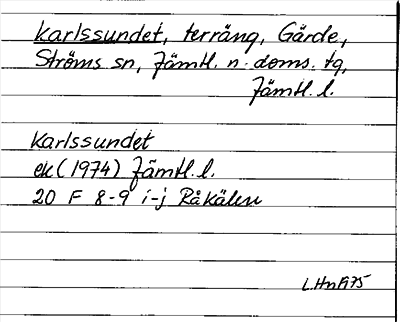 Karlssundet, terräng, Gärde,
Ströms sn, Jämtl. n. doms. tg,
Jämtl. l.
Karlssundet
ek (1974) Jämtl. l.
20 F 8-9 i-j Råkälen